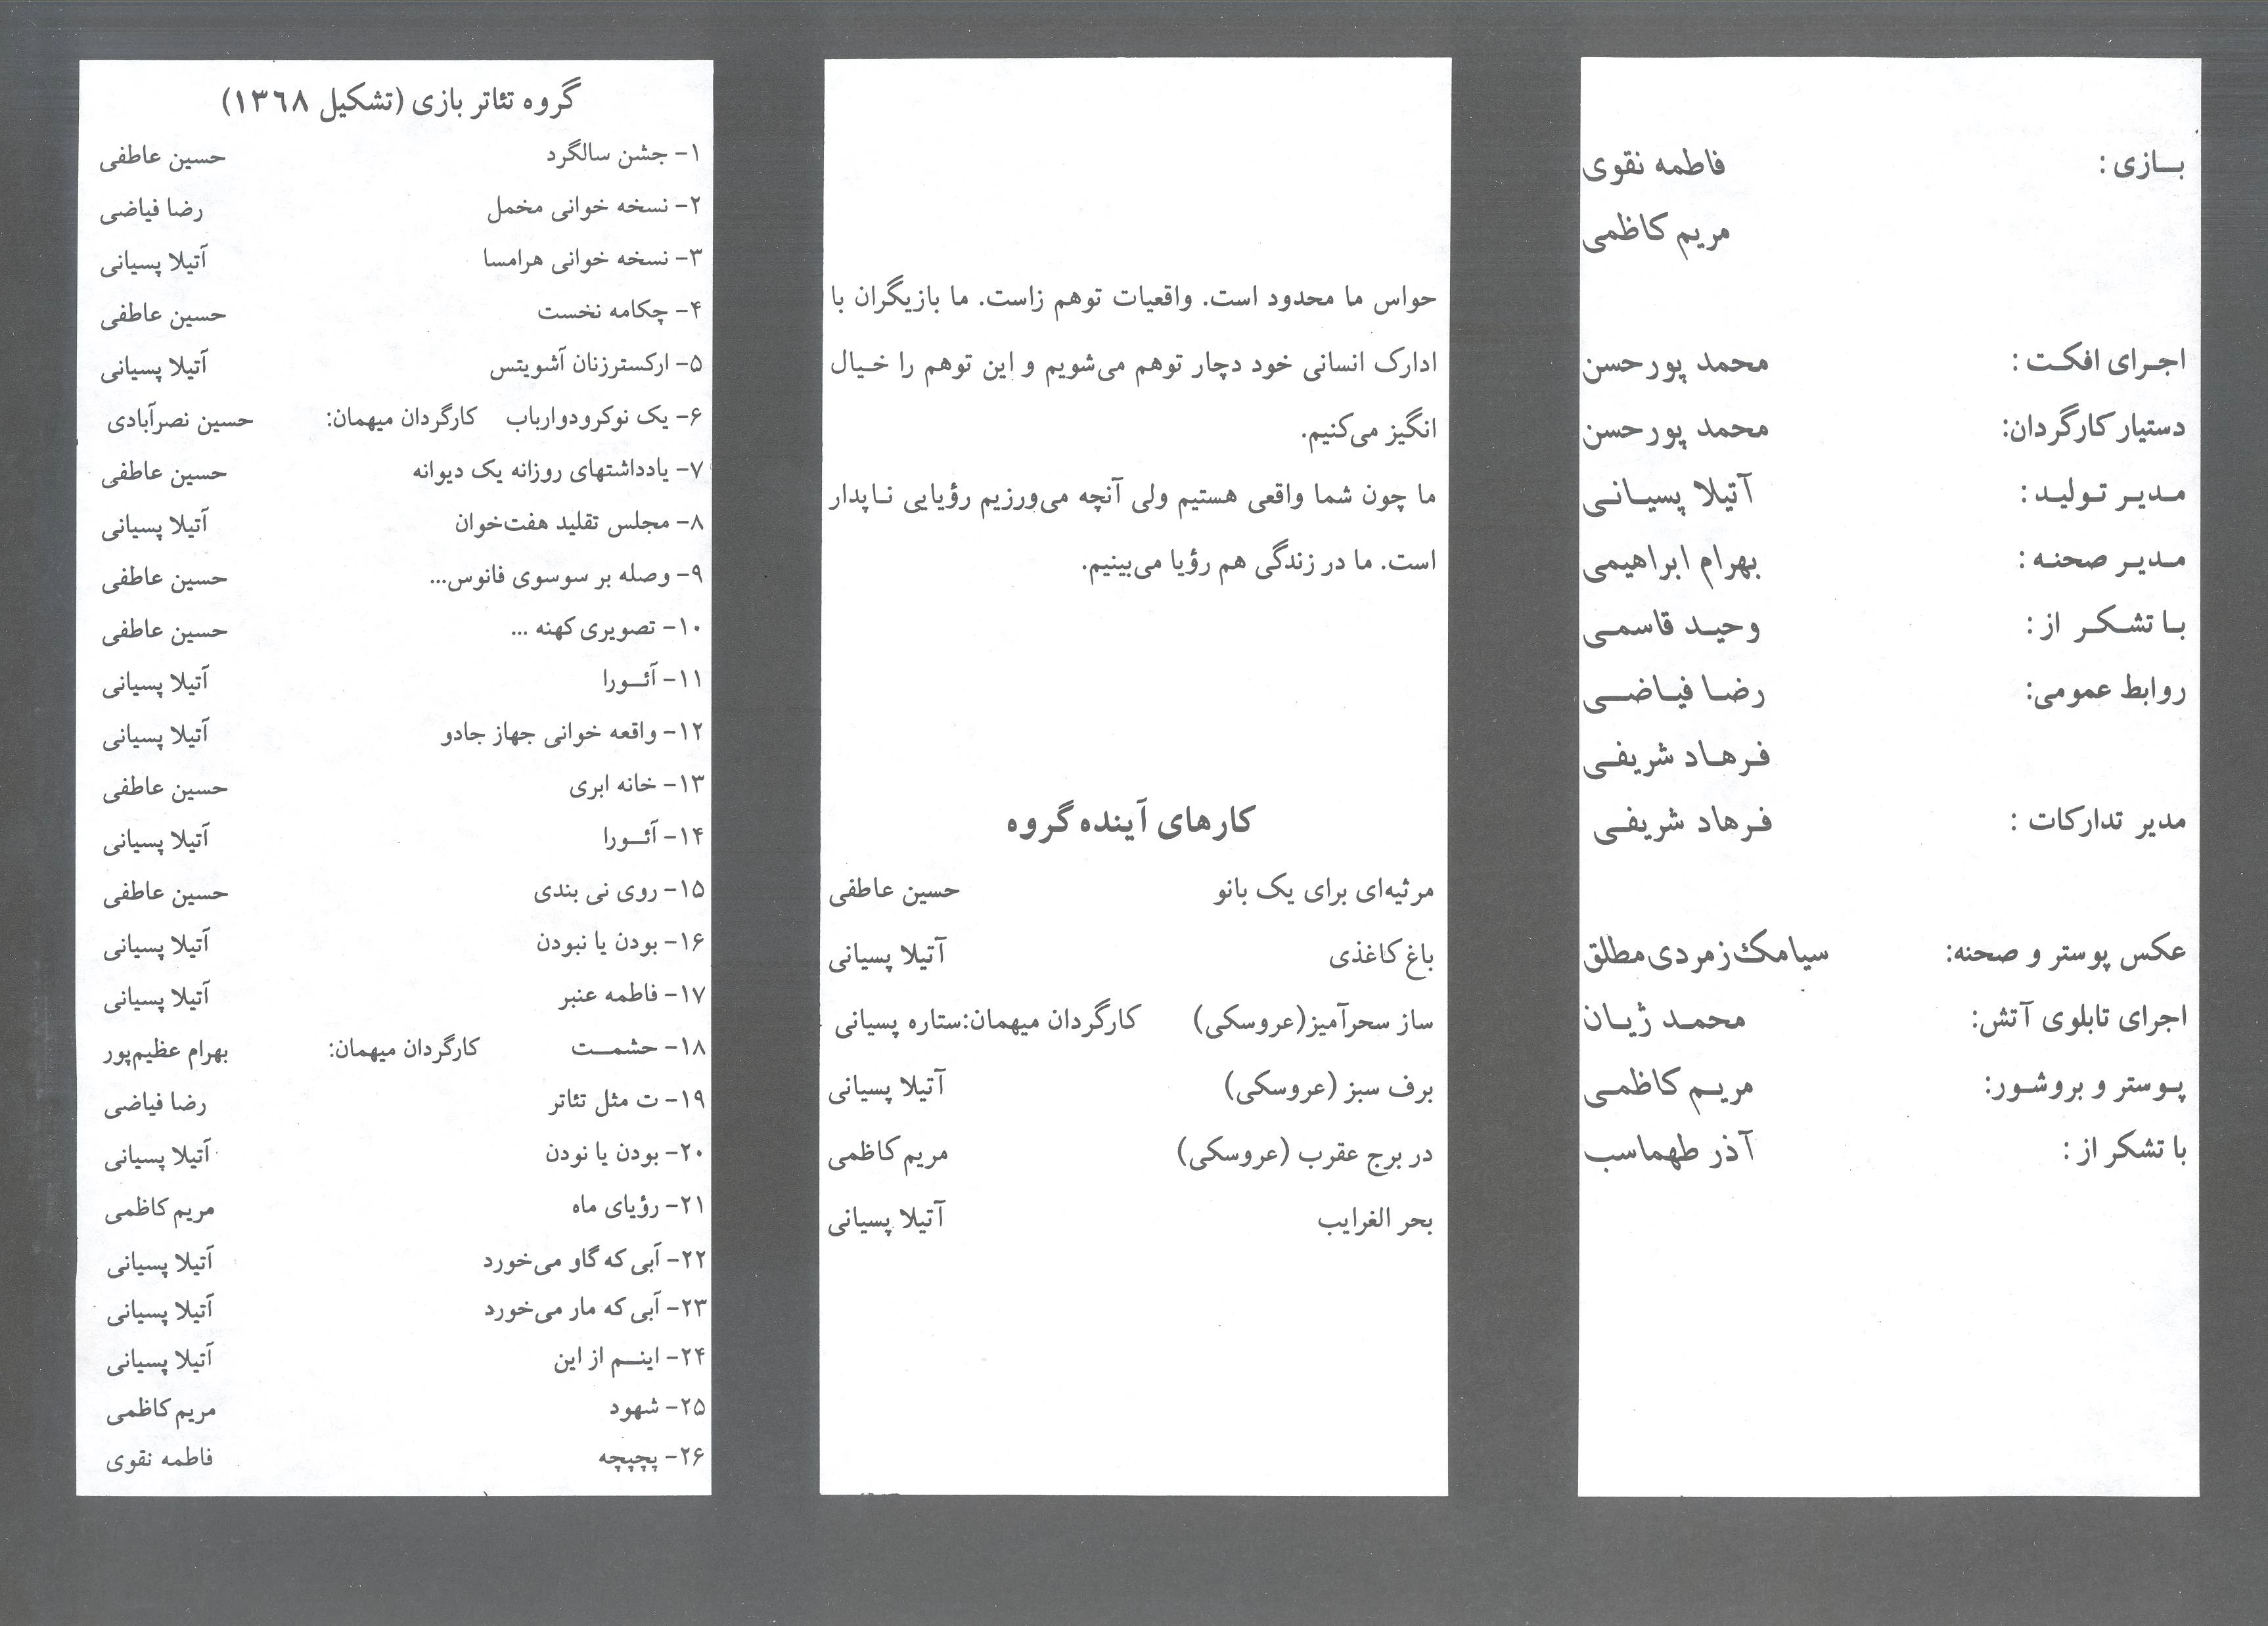 بازی : فاطمه نقوی
مریم کاظمی
اجرای افکت : محمد پورحسن
دستیار کارگردان: محمد پورحسن
مدیر تولید : آتیلا پسیانی
مدیر صحنه : بهرام ابراهیمی
با تشکر از : وحید قاسمی
روابط عمومی: رضا فیاضی
فرهاد شریفی
مدیر تدارکات : فرهاد شریفی
عکس پوستر و صحنه: سیامک زمردی مطلق
اجرای تابلوی آتش: محمد ژیان
پوستر و بروشور: مریم کاظمی
با تشکر از : آذر طهماسب
حواس ما محدود است. واقعیات توهم زاست. ما بازیگران با
ادارک انسانی خود دچار توهم می‌شویم و این توهم را خیال
انگیز می‌کنیم.
ما چون شما واقعی هستیم ولی آنچه می‌ورزیم رؤیایی ناپدار
است. ما در زندگی هم رؤیا می‌بینیم.
کارهای آینده گروه
مرثیه‌ای برای یک بانو حسین عاطفی
باغ کاغذی آتیلا پسیانی
ساز سحرآمیز(عروسکی) کارگردان میهمان:ستاره پسیانی
برف سبز (عروسکی) آتیلا پسیانی
در برج عقرب (عروسکی) مریم کاظمی
بحر الغرایب آتیلا پسیانی
گروه تئاتر بازی (تشکیل ۱۳٦۸)
۱- جشن سالگرد حسین عاطفی
۲- نسخه خوانی مخمل رضا فیاضی
۳- نسخه خوانی هرامسا آتیلا پسیانی
۴- چکامه نخست حسین عاطفی
۵- ارکسترزنان آشویتس آتیلا پسیانی
۶- یک نوکرودوارباب کارگردان میهمان: حسین نصرآبادی
۷- یادداشتهای روزانه یک دیوانه حسین عاطفی
۸- مجلس تقلید هفت‌خوان آتیلا پسیانی
۹- وصله بر سوسوی فانوس... حسین عاطفی
۱۰- تصویری کهنه ... حسین عاطفی
۱۱- آئورا آتیلا پسیانی
۱۲- واقعه خوانی جهاز جادو آتیلا پسیانی
۱۳- خانه ابری حسین عاطفی
۱۴- آئورا آتیلا پسیانی
۱۵- روی نی بندی حسین عاطفی
۱۶- بودن یا نبودن آتیلا پسیانی
۱۷- فاطمه عنبر آتیلا پسیانی
۱۸- حشمت کارگردان میهمان: بهرام عظیم‌پور
۱۹- ت مثل تئاتر رضا فیاضی
۲۰- بودن یا نودن آتیلا پسیانی
۲۱- رؤیای ماه مریم کاظمی
۲۲- آبی که گاو می‌خورد آتیلا پسیانی
۲۳- آبی که مار می‌خورد آتیلا پسیانی
۲۴- اینم از این آتیلا پسیانی
۲۵- شهود مریم کاظمی
۲۶- پچپچه فاطمه نقوی